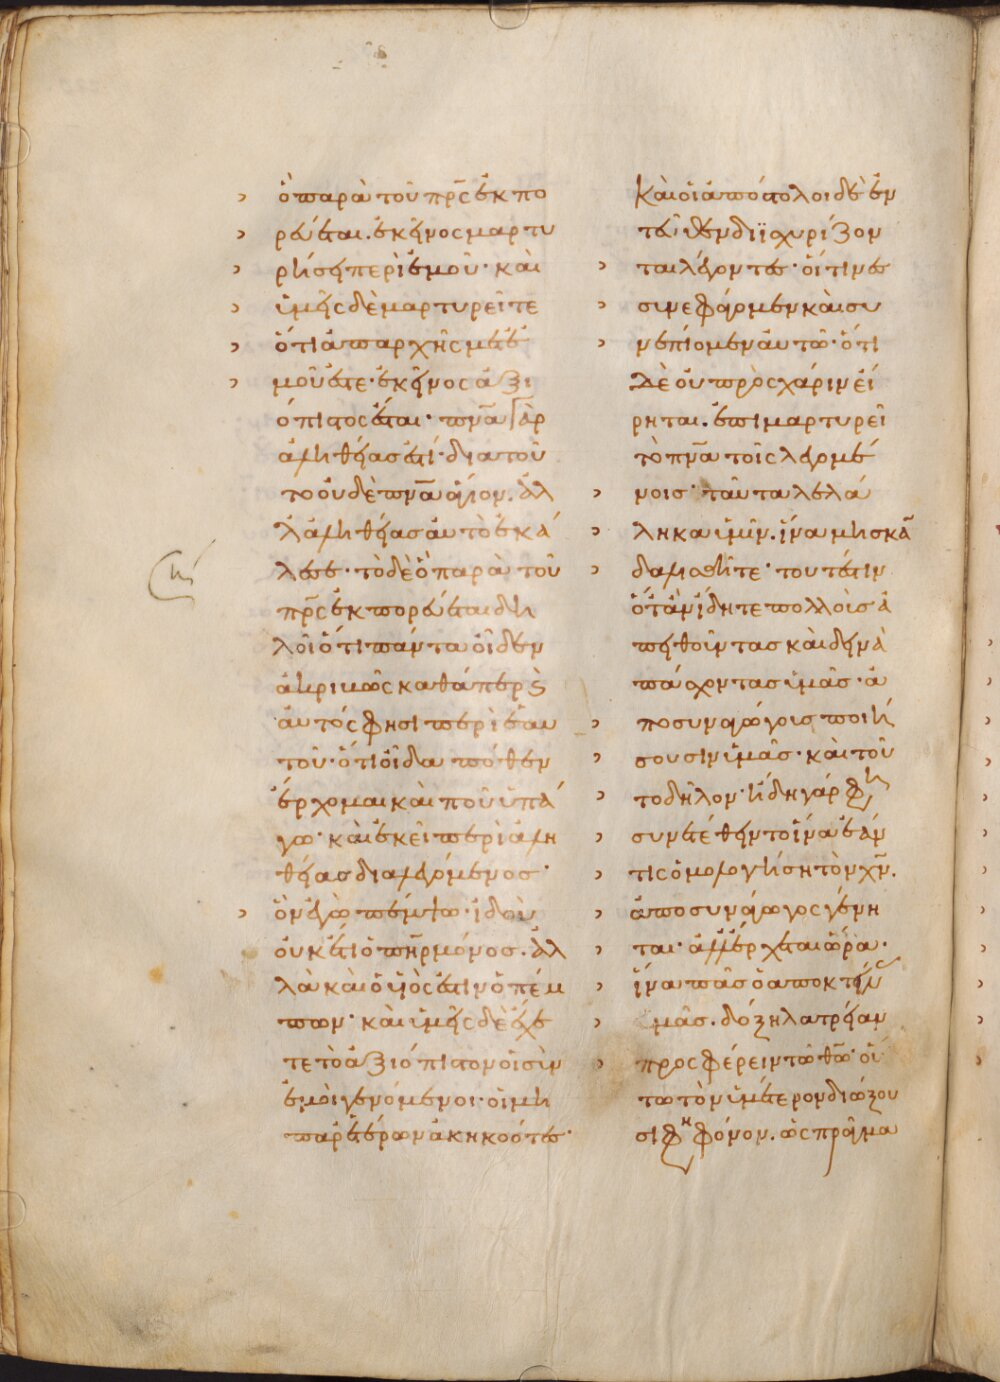 ὁ παρὰ τοῦ πρ̅ς ἐκπο
ρεύεται. ἐκεῖνος μαρτυ
ρήσει περὶ ἐμοῦ· καὶ
ὑμεῖς δὲ μαρτυρεῖτε
ὅτι ἀπαρχῆς μετἐ
μοῦ ἐστε· ἐκεῖνος ἀξι
όπιστος ἔσται· πν̅α γὰρ
ἀληθείας ἐστί· διατοῦ
το οὐδὲ πν̅α ἅγιον. ἀλ
λἀληθείας αὐτὸ ἐκά
λεσε· τὸ δὲ ὃ παρὰ τοῦ
πρ̅ς ἐκπορεύεται δη
λοῖ ὅτι πάντα οἶδεν
ἀκριβῶς καθάπερ ϗ
αὐτός φησι περὶ ἑαυ
τοῦ· ὅτι οἶδα πόθεν
ἔρχομαι καὶ ποῦ ὑπά
γω· κἀκεῖ περὶ ἀλη
θείας διαλεγόμενος·
ὃν ἐγὼ πέμψω· ἰδοὺ
οὐκέτι ὁ πη̅ρ μόνος. ἀλ
λὰ καὶ ὁ υἱὸς ἐστιν ὁ πέμ
πων· καὶ ὑμεῖς δὲ ἔχε
τε τὸ ἀξιόπιστον οἱ σὺν
ἐμοὶ γενόμενοι· οἱ μὴ
παρἑτέρων ἀκηκοότες·
Καὶ οἱ ἀπόστολοι δὲ ἐν
τεῦθεν διϊσχυρίζον
ται λέγοντες· οἵτινες
συνεφάγομεν καὶ συ
νεπίομεν αὐτῶ· ὅτι
δὲ οὐ πρὸς χάριν εἴ
ρηται. ἐπιμαρτυρεῖ
τὸ πν̅α τοῖς λεγομέ
νοις· ταῦτα λελά
ληκα ὑμῖν. ἵνα μὴ σκα̅
δαλισθῆτε· τουτέστιν
ὅταν ἴδητε πολλοὺς ἀ
πειθοῦντας καὶ δεινὰ
πάσχοντας ὑμᾶς· ἀ
ποσυναγώγους ποιή
σουσιν ὑμᾶς· καὶ τοῦ
το δῆλον· ἤδη γάρ φη
συνετέθειντο ἵνα ἐάν
τις ὁμολογήση τὸν χν̅.
ἀποσυνάγωγος γένη
ται· ἀλλἔρχεται ὥρα·
ἵνα πᾶς ὁ ἀποκτείν
μᾶς. δόξη λατρείαν
προσφέρειν τῶ θω̅· οὕ
τω τὸν ὑμέτερον διώξου
σι φη φόνον. ὡς πρᾶγμα